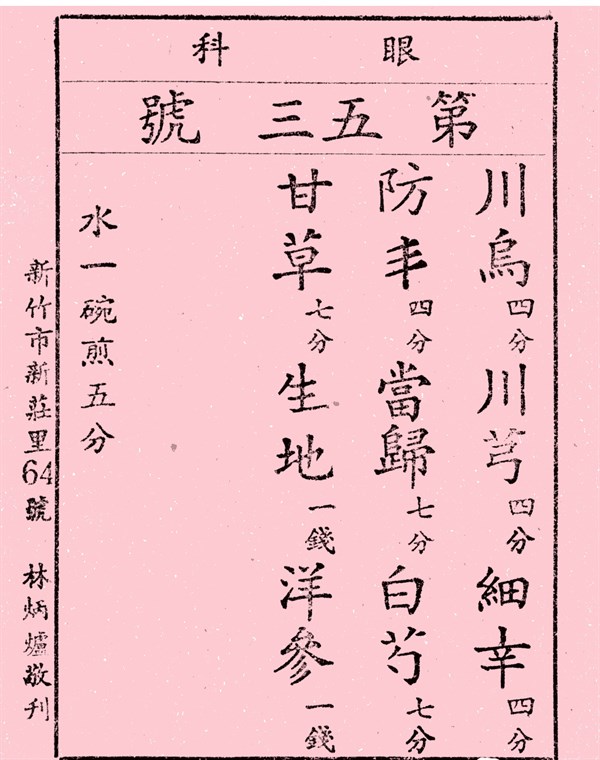 眼科
第五三號
川烏四分 川芎四分 細辛四分
防丰四分 當歸七分 白芍七分
甘草七分 生地一錢 洋參一錢
水一碗煎五分
新竹市新莊里64號 林炳爐敬刊